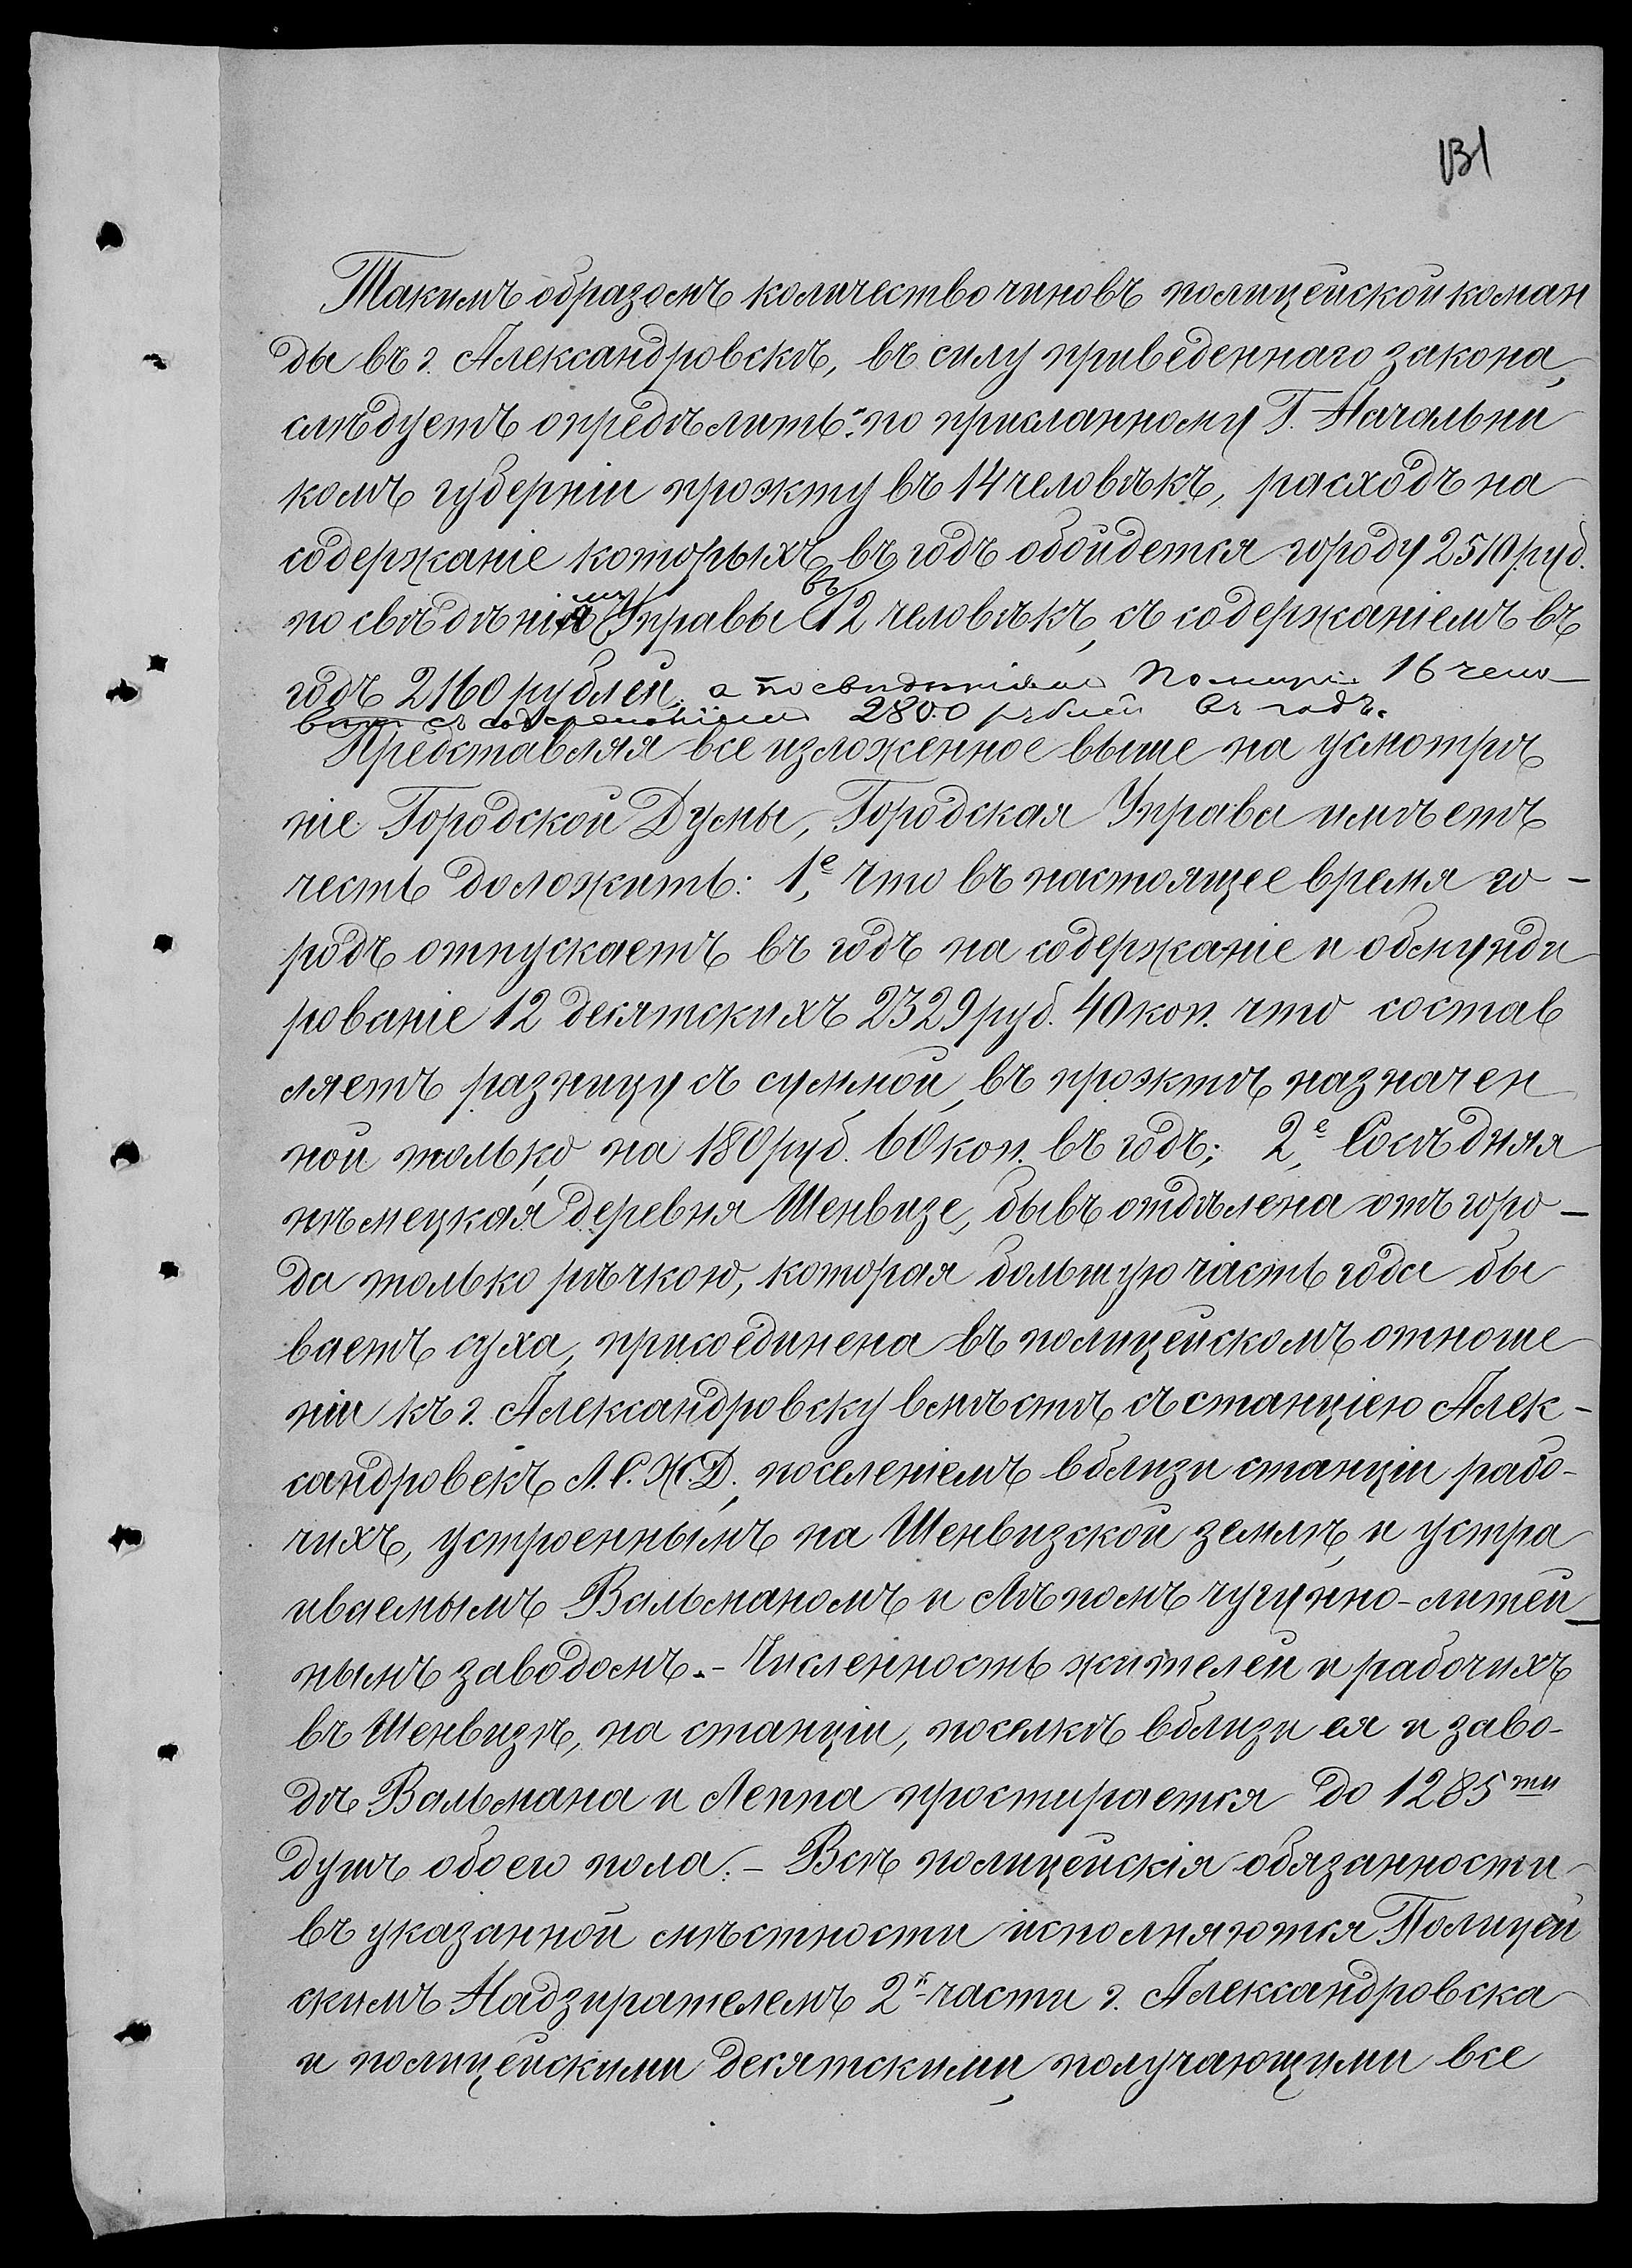 131
Такимъ образомъ количество чиновъ полицейской коман
ды въ г. Александровскѣ, въ силу приведеннаго закона,
слѣдуетъ опредѣлить: по присланному Г. Начальни
комъ губерніи проэкту въ 14 человѣкъ, расходъ на
содержаніе которыхъ въ годъ обойдется городу 2510 руб.
по свѣдѣніямъ Управы въ 12 человѣкъ, съ содержаніемъ въ
годъ 2160 рублей, а по свидѣніямъ Полиціи 16 чело-
вѣкъ съ содержаніемъ 2800 рублей въ годъ.
Представляя все изложенное выше на усмотрѣ
ніе Городской Думы, Городская Управа имѣетъ
честь доложить: 1е, Что въ настоящее время го-
родъ отпускаетъ въ годъ на содержаніе и обмунди
рованіе 12 десятскихъ 2329 руб. 40 коп. что состав
ляетъ разницу съ суммой, въ проэктѣ назначен
ной только на 180 руб. 60 коп. въ годъ; 2е, Сосѣдняя
нѣмецкая деревня Шенвизе, бывъ отдѣлена отъ горо-
да только рѣчкою, которая большую часть года бы
ваетъ суха, присоединена въ полицейскомъ отноше
ніи къ г. Александровску вмѣстѣ съ станціею Алек-
сандровскъ Л.С.Ж.Д., поселеніемъ вблизи станціи рабо-
чихъ, устроеннымъ на Шенвизской землѣ, и устра
иваемымъ Вальманомъ и Лѣпомъ чугунно-литей-
нымъ заводомъ.- Численность жителей и рабочихъ
въ Шенвизѣ, на станціи, поселкѣ вблизи ея и заво-
дѣ Вальмана и Леппа простирается до 1285ти
душъ обоего пола.- Всѣ полицейскія обязанности
въ указанной мѣстности исполняются Полицей
скимъ Надзирателемъ 2й части г. Александровска
и полицейскими десятскими, получающими все